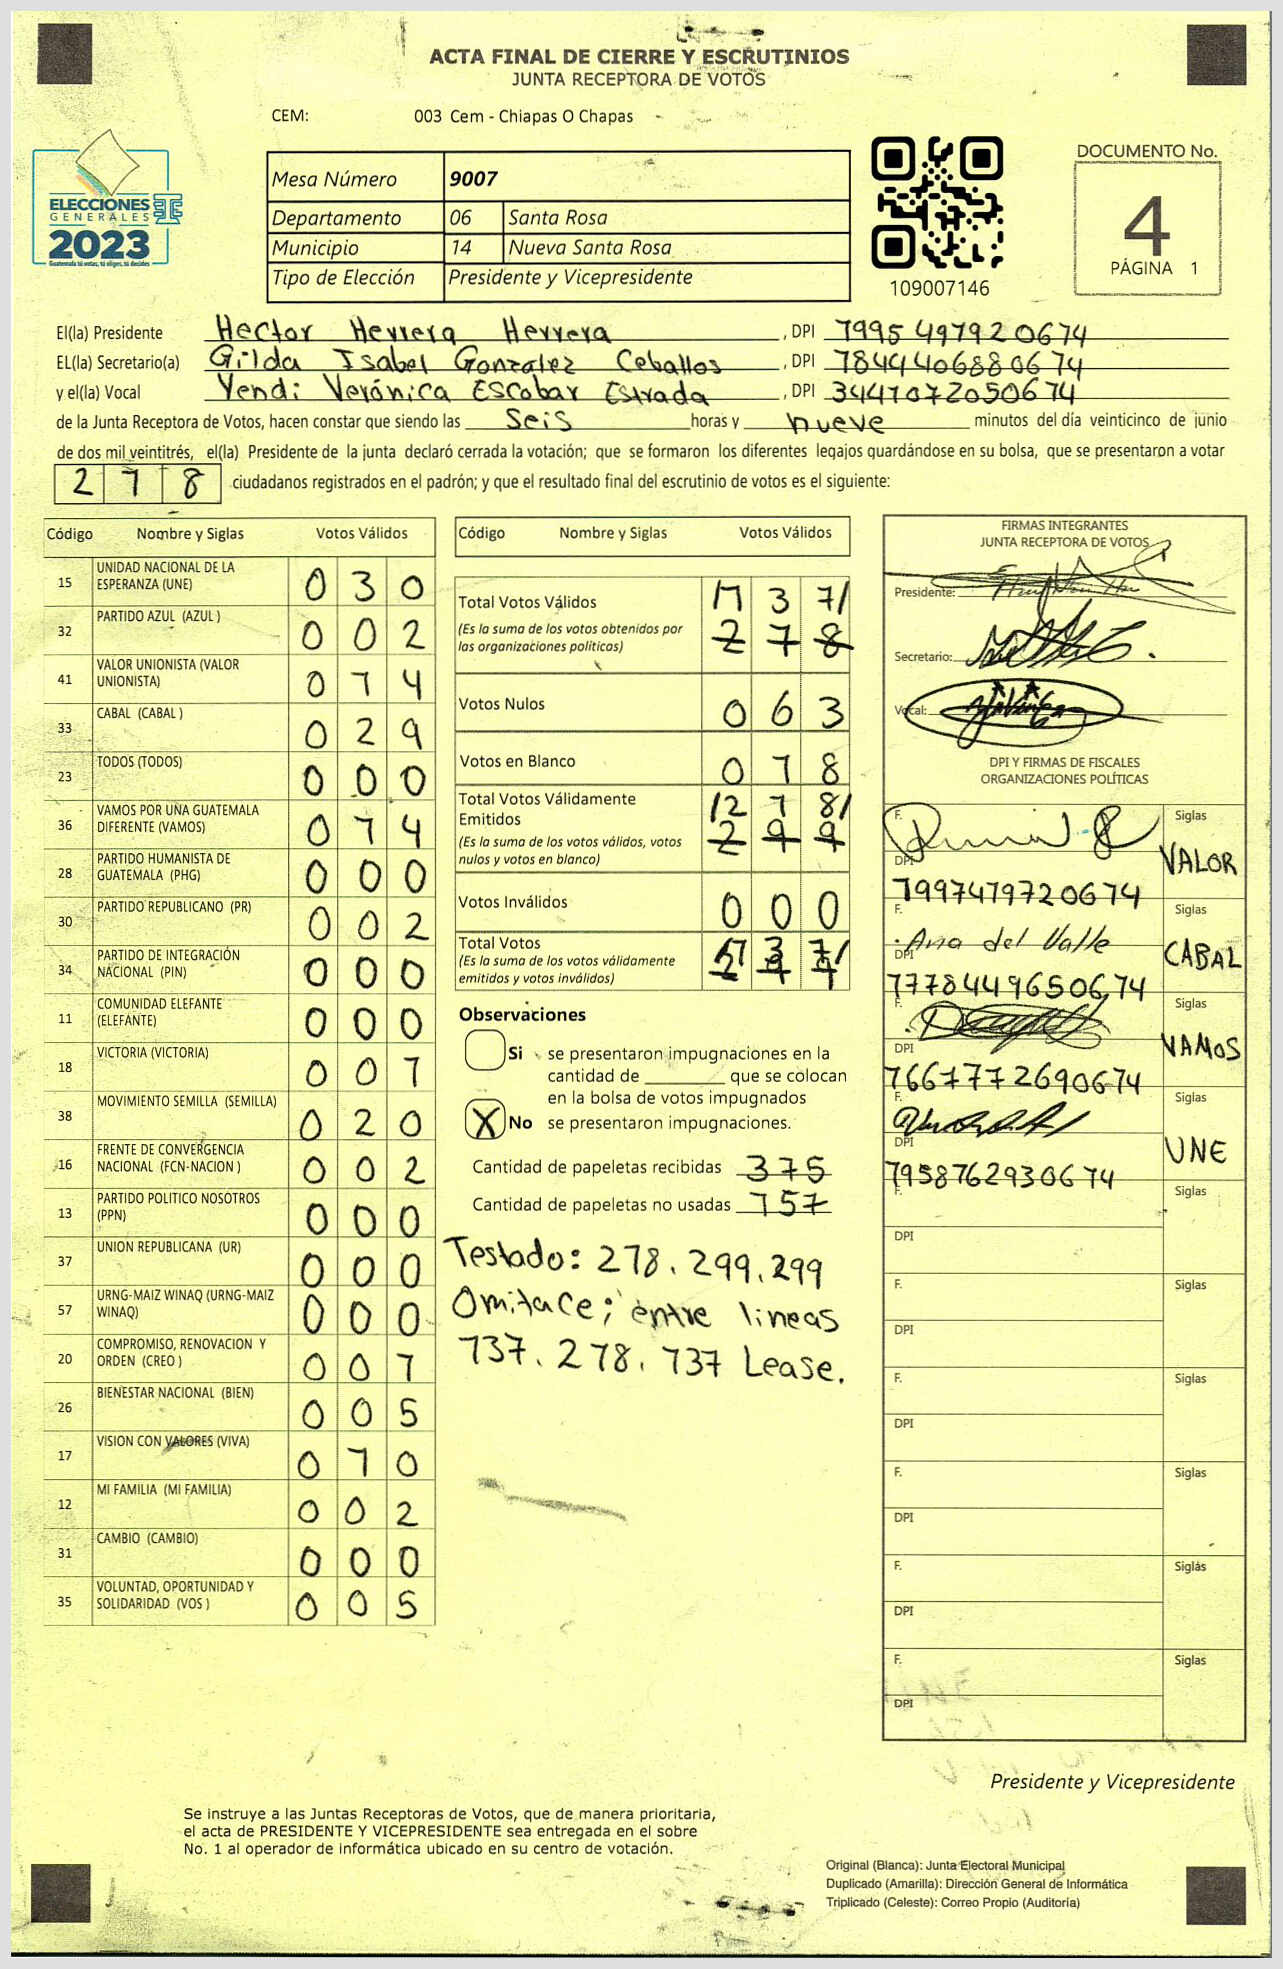 ACTA FINAL DE CIERRE Y ESCRUTINIOS
JUNTA RECEPTORA DE VOTOS
CEM: 003 Cem - Chiapas O Chapas
ELECCIONES
GENERALES
2023
Guatemala tú votas, tú eliges, tú decides
Mesa Número 9007
Departamento 06 Santa Rosa
Municipio 14 Nueva Santa Rosa
Tipo de Elección Presidente y Vicepresidente
109007146
DOCUMENTO No.
4
PÁGINA 1
El(la) Presidente Hector Herrera Herrera , DPI 1995497920614
EL(la) Secretario(a) Gilda Isabel Gonzalez Ceballos , DPI 1844406880614
y el(la) Vocal Yendi Verónica Escobar Estrada , DPI 3441072050614
de la Junta Receptora de Votos, hacen constar que siendo las seis horas y nueve minutos del día veinticinco de junio
de dos mil veintitrés, el(la) Presidente de la junta declaró cerrada la votación; que se formaron los diferentes legajos guardándose en su bolsa, que se presentaron a votar
218 ciudadanos registrados en el padrón; y que el resultado final del escrutinio de votos es el siguiente:
Código Nombre y Siglas Votos Válidos
15 UNIDAD NACIONAL DE LA ESPERANZA (UNE) 030
32 PARTIDO AZUL (AZUL ) 002
41 VALOR UNIONISTA (VALOR UNIONISTA) 014
33 CABAL (CABAL ) 029
23 TODOS (TODOS) 000
36 VAMOS POR UNA GUATEMALA DIFERENTE (VAMOS) 014
28 PARTIDO HUMANISTA DE GUATEMALA (PHG) 000
30 PARTIDO REPUBLICANO (PR) 002
34 PARTIDO DE INTEGRACIÓN NACIONAL (PIN) 000
11 COMUNIDAD ELEFANTE (ELEFANTE) 000
18 VICTORIA (VICTORIA) 001
38 MOVIMIENTO SEMILLA (SEMILLA) 020
16 FRENTE DE CONVERGENCIA NACIONAL (FCN-NACION ) 002
13 PARTIDO POLITICO NOSOTROS (PPN) 000
37 UNION REPUBLICANA (UR) 000
57 URNG-MAIZ WINAQ (URNG-MAIZ WINAQ) 000
20 COMPROMISO, RENOVACION Y ORDEN (CREO ) 001
26 BIENESTAR NACIONAL (BIEN) 005
17 VISION CON VALORES (VIVA) 010
12 MI FAMILIA (MI FAMILIA) 002
31 CAMBIO (CAMBIO) 000
35 VOLUNTAD, OPORTUNIDAD Y SOLIDARIDAD (VOS ) 005
Código Nombre y Siglas Votos Válidos
Total Votos Válidos /137/
(Es la suma de los votos obtenidos por las organizaciones políticas) 218
Votos Nulos 063
Votos en Blanco 018
Total Votos Válidamente Emitidos /218/
(Es la suma de los votos válidos, votos nulos y votos en blanco) 299
Votos Inválidos 000
Total Votos /137/
(Es la suma de los votos válidamente emitidos y votos inválidos) 299
Observaciones
Si se presentaron impugnaciones en la
cantidad de ________ que se colocan
en la bolsa de votos impugnados
X No se presentaron impugnaciones.
Cantidad de papeletas recibidas 375
Cantidad de papeletas no usadas 157
Testado: 218. 299. 299
Omitace; entre lineas
137. 218. 137 Lease.
FIRMAS INTEGRANTES
JUNTA RECEPTORA DE VOTOS
Presidente:
Secretario:
Vocal:
DPI Y FIRMAS DE FISCALES
ORGANIZACIONES POLÍTICAS
F. Siglas VALOR
DPI 1997479720614
F. Ana del Valle Siglas CABAL
DPI 1778449650614
F. Siglas VAMOS
DPI 1667772690614
F. Siglas UNE
DPI 1958762930614
F. Siglas
DPI
F. Siglas
DPI
F. Siglas
DPI
F. Siglas
DPI
F. Siglas
DPI
F. Siglas
DPI
Presidente y Vicepresidente
Se instruye a las Juntas Receptoras de Votos, que de manera prioritaria,
el acta de PRESIDENTE Y VICEPRESIDENTE sea entregada en el sobre
No. 1 al operador de informática ubicado en su centro de votación.
Original (Blanca): Junta Electoral Municipal
Duplicado (Amarilla): Dirección General de Informática
Triplicado (Celeste): Correo Propio (Auditoría)